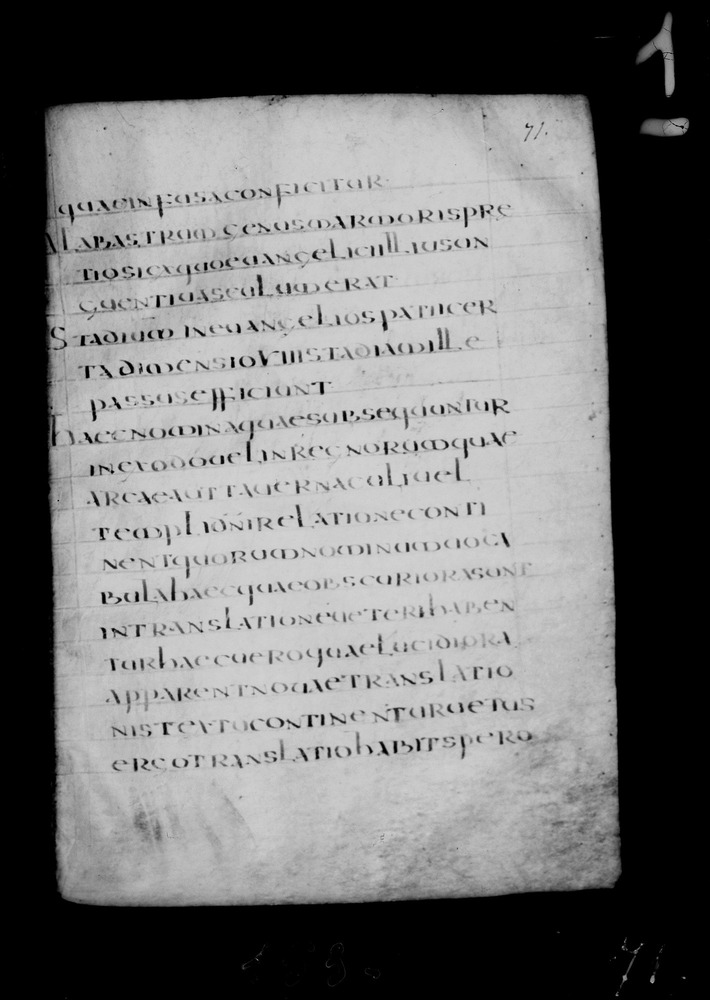 1
71.
quaeinfusaconficitur
Alabastrumgenusmarmorispre
tiosiexquoeuangeliciilliuson
guentiuasculumerat
Stadiumineuangeliospatricer
tadimensioVIIIstadiamille
passusefficiunt
haecnominaquaesubsequuntur
inexodouelinregnorumquae
arcaeauttauernaculiuel
templidnirelationeconti
nentquorumnominumuoca
bulahaecquaeobscuriorasunt
intranslationeueterihaben
turhaecueroquaelucidiora
apparentnouaetranslatio
nistextucontinenturuetus
ergotranslatiohabitspero
71.